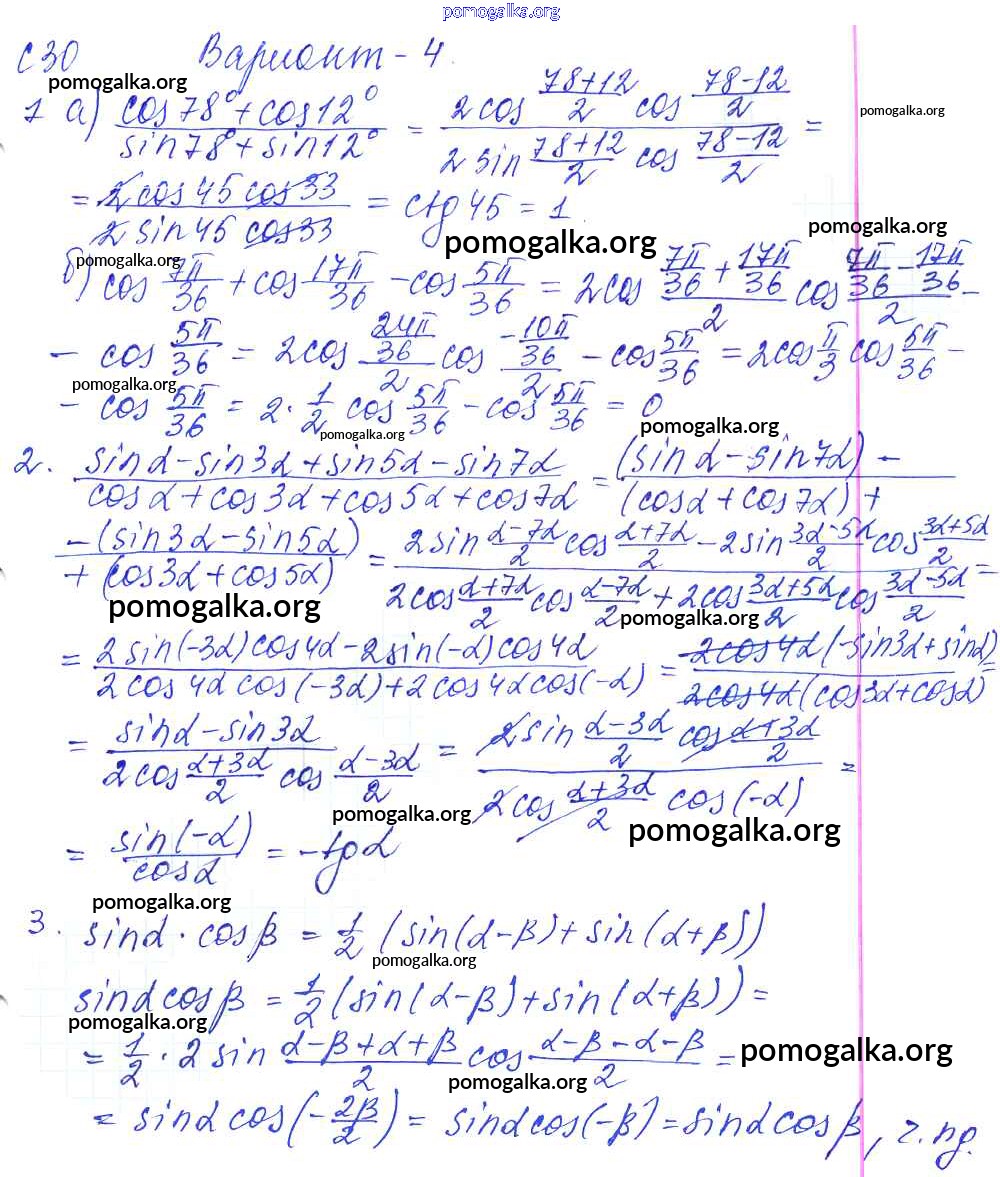 pomogalka.org
С 30 Вариант - 4.
pomogalka.org
1 а) (cos 78° + cos 12°)/(sin 78° + sin 12°) = (2 cos (78+12)/2 cos (78-12)/2)/(2 sin (78+12)/2 cos (78-12)/2) =
pomogalka.org
= (2 cos 45 cos 33)/(2 sin 45 cos 33) = ctg 45 = 1.
pomogalka.org
pomogalka.org
pomogalka.org
б) cos 7π/36 + cos 17π/36 - cos 5π/36 = 2 cos (7π/36 + 17π/36)/2 cos (7π/36 - 17π/36)/2 -
- cos 5π/36 = 2 cos (24π/36)/2 cos (-10π/36)/2 - cos 5π/36 = 2 cos π/3 cos 5π/36 -
pomogalka.org
- cos 5π/36 = 2 · 1/2 cos 5π/36 - cos 5π/36 = 0
pomogalka.org
pomogalka.org
2. (sin α - sin 3α + sin 5α - sin 7α)/(cos α + cos 3α + cos 5α + cos 7α) = ((sin α - sin 7α) -)/((cos α + cos 7α) +)
(-(sin 3α - sin 5α))/(+ (cos 3α + cos 5α)) = (2 sin (α-7α)/2 cos (α+7α)/2 - 2 sin (3α-5α)/2 cos (3α+5α)/2)/(2 cos (α+7α)/2 cos (α-7α)/2 + 2 cos (3α+5α)/2 cos (3α-5α)/2) =
pomogalka.org
pomogalka.org
= (2 sin(-3α) cos 4α - 2 sin(-α) cos 4α)/(2 cos 4α cos(-3α) + 2 cos 4α cos(-α)) = (2 cos 4α (-sin 3α + sin α))/(2 cos 4α (cos 3α + cos α)) =
= (sin α - sin 3α)/(2 cos (α+3α)/2 cos (α-3α)/2) = (2 sin (α-3α)/2 cos (α+3α)/2)/(2 cos (α+3α)/2 cos(-α)) =
pomogalka.org
pomogalka.org
= sin(-α)/cos α = - tg α
pomogalka.org
3. sin α · cos β = 1/2 (sin(α-β) + sin(α+β))
pomogalka.org
sin α cos β = 1/2 (sin(α-β) + sin(α+β)) =
pomogalka.org
= 1/2 · 2 sin (α-β+α+β)/2 cos (α-β-α-β)/2 =
pomogalka.org
pomogalka.org
= sin α cos(-2β/2) = sin α cos(-β) = sin α cos β, ч. тд.